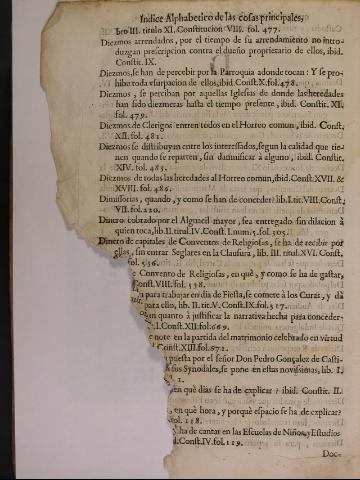 Indice Alphabetico de las cosas principales,
bro III. titulo XI. Constitucion VIII. fol. 477.
Diezmos arrendados, por el tiempo de su arrendamiento no intro-
duzgan prescripcion contra el dueño proprietario de ellos, ibid.
Constit. IX.
Diezmos, se han de percebir por la Parroquia adonde tocan: Y se pro-
hibe toda vsurpacion de ellos, ibid. Const. X. fol. 478.
Diezmos, se perciban por aquellas Iglesias de donde las heredades
han sido diezmeras hasta el tiempo presente, ibid. Constit. XI.
fol. 479.
Diezmos de Clerigos entren todos en el Horreo comun, ibid. Const.
XII. fol. 481.
Diezmos se distribuyan entre los interessados, segun la calidad que tie-
nen quando se reparten, sin damnificar à alguno, ibid. Constit.
XIV. fol. 483.
Diezmos de todas las heredades al Horreo comun, ibid. Const. XVII. &
XVIII. fol. 486.
Dimissorias, quando, y como se han de conceder? lib. I. tit. VIII. Const.
VII. fol. 210.
Dinero cobrado por el Alguacil mayor, sea entregado sin dilacion à
quien toca, lib. II. titul. IV. Const. I. num. 5. fol. 305.
Dinero de capitales de Conventos de Religiosas, se ha de recibir por
ellas, sin entrar Seglares en la Clausura, lib. III. titul. XVI. Const.
fol. 536.
de Convento de Religiosas, en què, y como se ha de gastar,
Const. VIII. fol. 538.
para trabajar en dia de Fiesta, se comete à los Curas, y dà
para ello, lib. II. tit. V. Const. IX. fol. 317.
en quanto à justificar la narrativa hecha para conceder-
I. Const. XII. fol. 669.
note en la partida del matrimonio celebrado en virtud
Const. XIII. fol. 671.
puesta por el señor Don Pedro Gonçalez de Casti-
sus Synodales, se pone en estas novissimas, lib. I.
1.
en què dias se ha de explicar? ibid. Constit. II.
, en què hora, y porquè espacio se ha de explicar?
fol. 118.
ha de cantar en las Escuelas de Niños, y Estudios
d. Const. IV. fol. 119.
Doc-